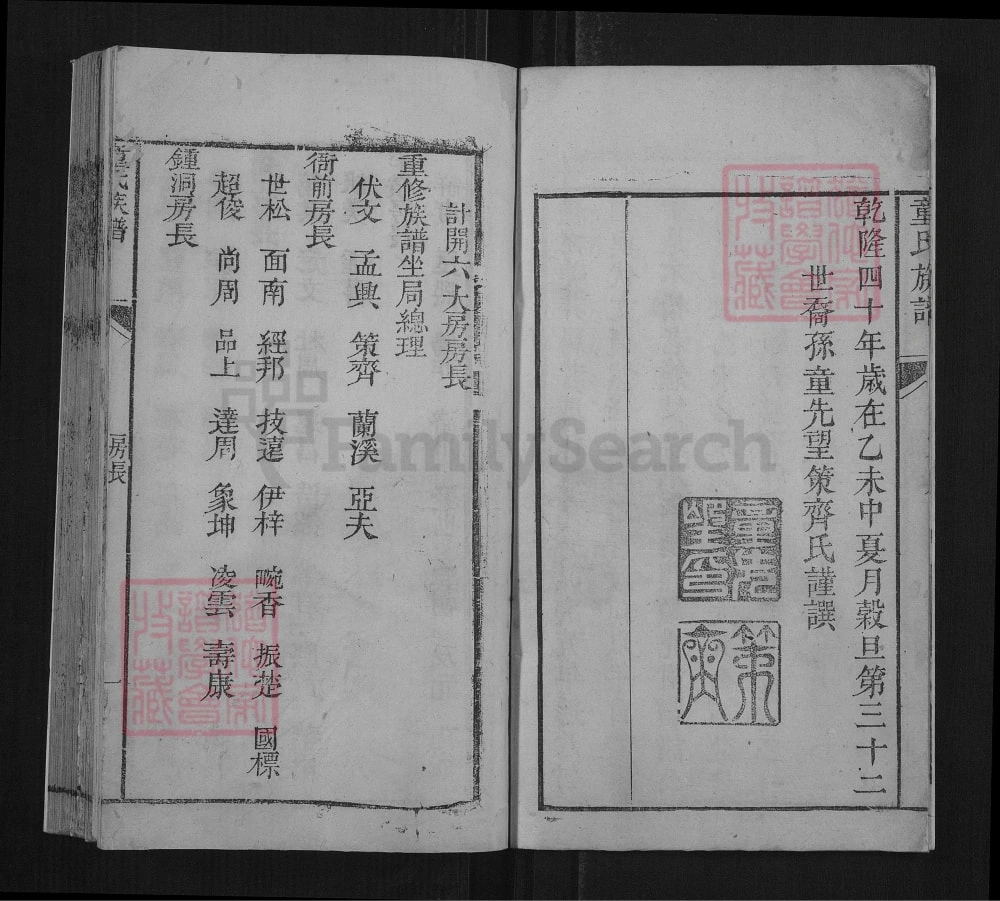 童氏族譜
乾隆四十年歲在乙未中夏月穀旦第三十二
世裔孫童先望策齊氏謹譔
策齊
計開六大房房長
重修族譜坐局總理
伏文 孟興 策齊 蘭溪 亞夫
衙前房長
世松 面南 經邦 技遠 伊梓 畹香 振楚 國標
超俊 尚周 品上 達周 象坤 凌雲 壽康
鍾洞房長
童氏族譜
房長
一
FamilySearch